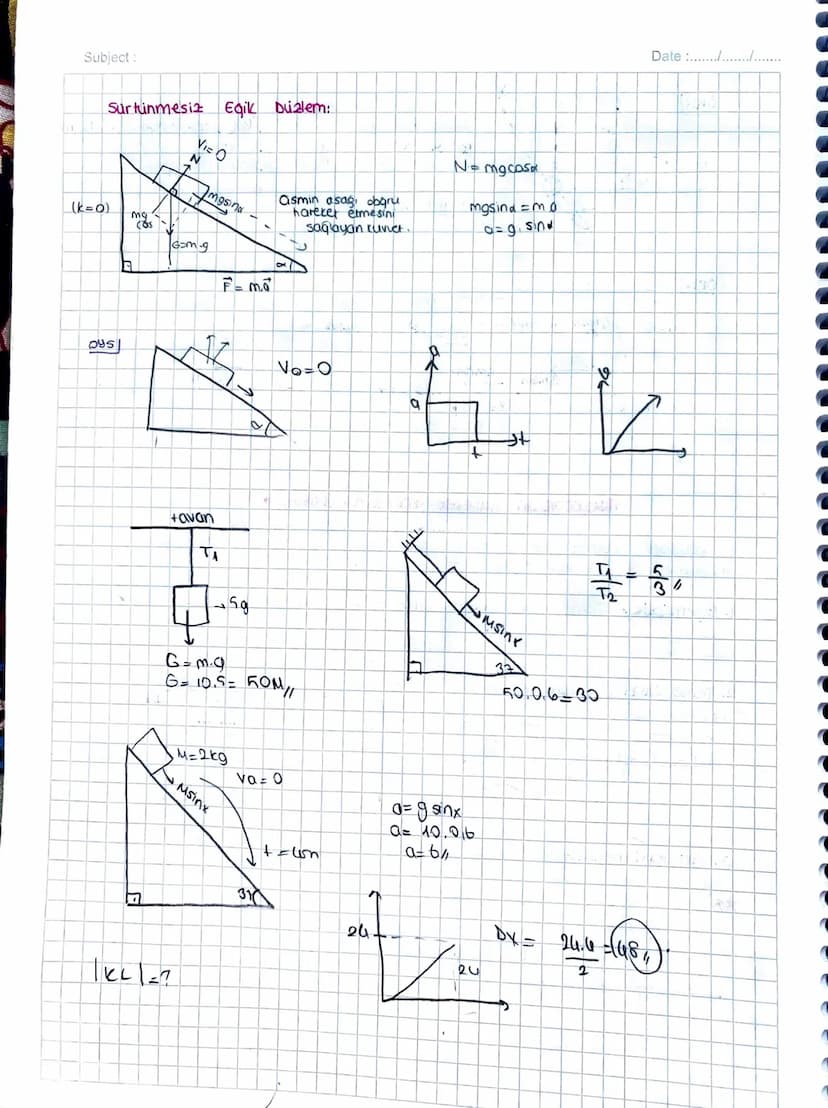 Subject :
Date :......./......./.......
Sürtünmesiz Eğik Düzlem:
V₁=0
N
mgsinα
(k=0)
mg
cos
G=m.g
α
F⃗ = ma⃗
Cismin aşağı doğru
hareket etmesini
sağlayan kuvvet.
N = mgcosα
mgsinα = m a
a = g. sinα
V₀=0
α
a
t
t
tavan
T₁
→5g
G = m.g
G = 10.5 = 50N//
Msinx
37
50.0.6=30
T₁/T₂ = 5/3 //
M=2kg
Va=0
Msinx
t = 4sn
37
|KL|=?
a= g sinx
a= 10.0,6
a= 6//
24
24
Dx = 24.4/2 = 48//